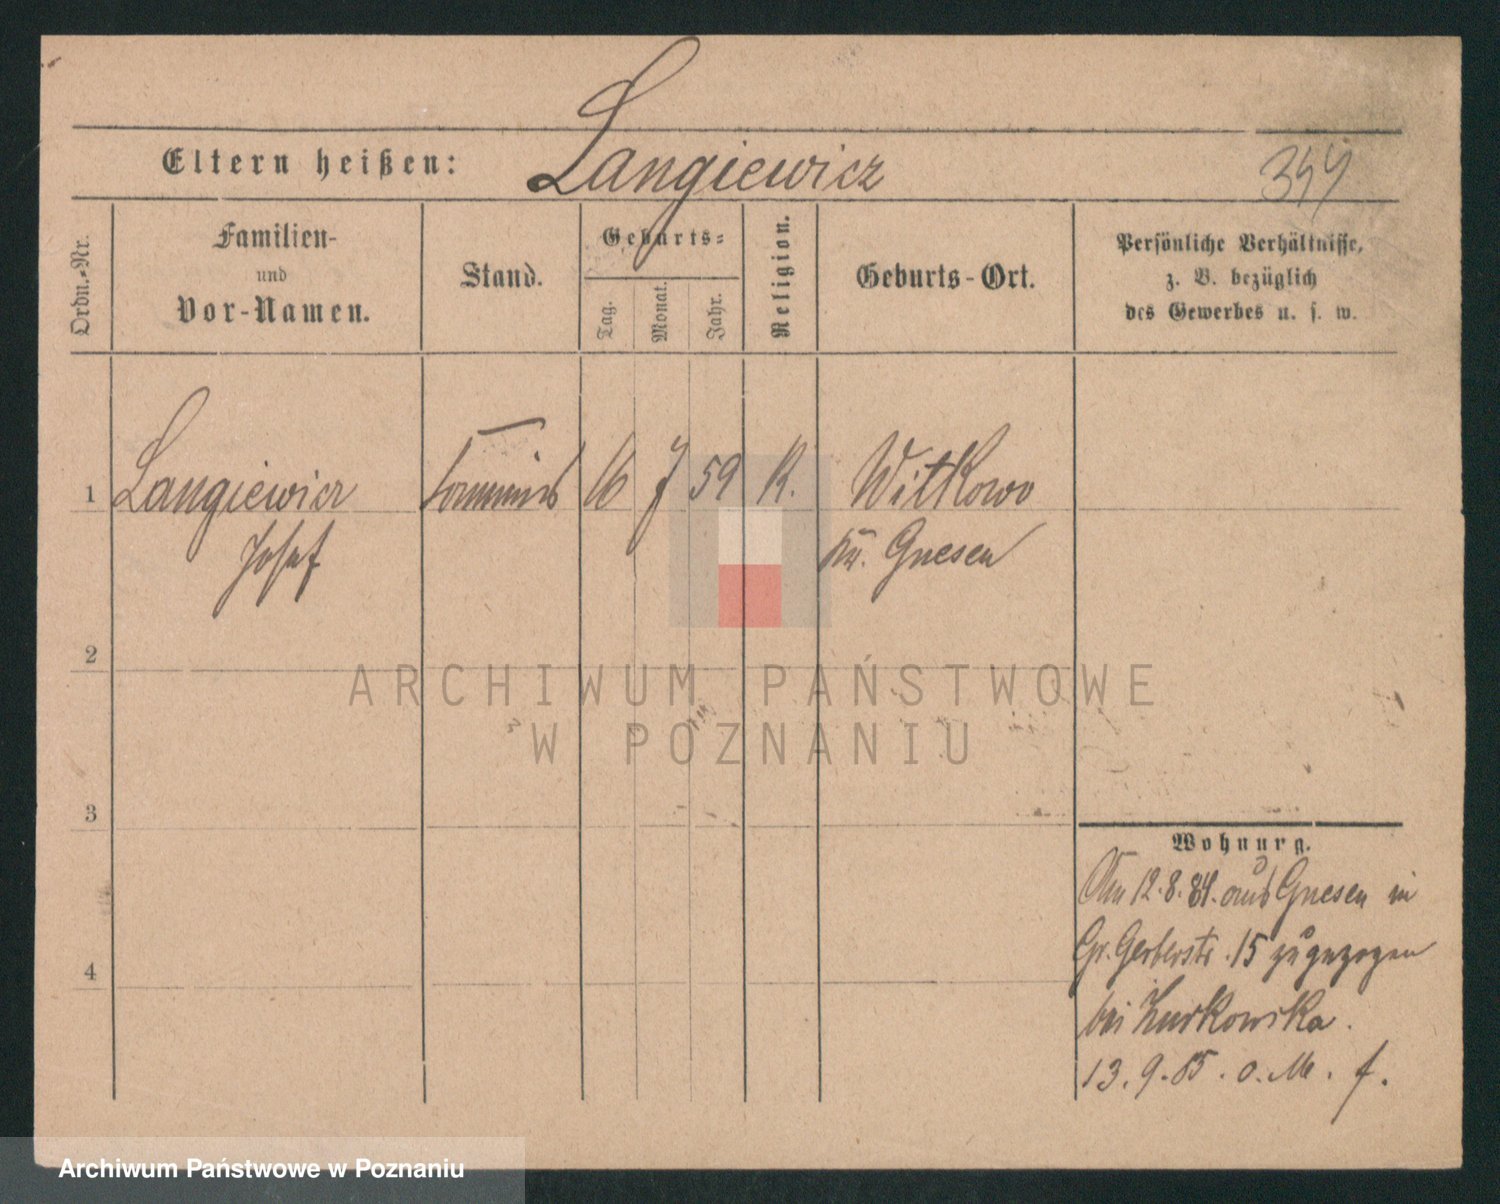 Langiewicz
Eltern heißen:
344
Ordn.-Nr.
Familien-
und
Vor-Namen.
Stand.
Geburts-
Tag.
Monat.
Jahr.
Religion.
Geburts-Ort.
Persönliche Verhältnisse,
z. B. bezüglich
des Gewerbes u. s. w.
1
Langiewicz
Josef
Commis
16
7
59
K.
Witkowo
Kr. Gnesen
2
3
4
Wohnung.
Am 12.8.84. aus Gnesen in
Gr. Gerberstr. 15 zugezogen
bei Zurkowska.
13.9.85. o. M. f.
ARCHIWUM PAŃSTWOWE
W POZNANIU
Archiwum Państwowe w Poznaniu